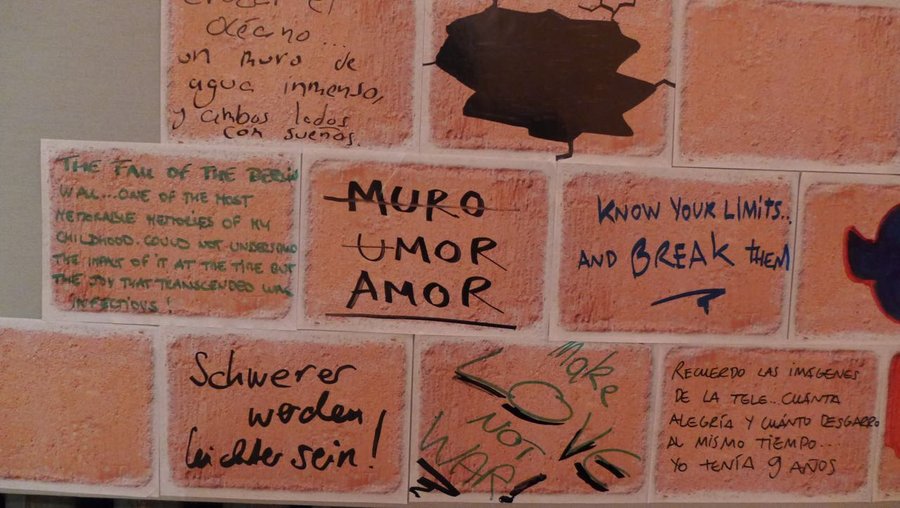 cruzar el
Océano...
un muro de
agua inmenso,
y ambos lados
con sueños.
THE FALL OF THE BERLIN
WALL... ONE OF THE MOST
MEMORABLE MEMORIES OF MY
CHILDHOOD. COULD NOT UNDERSTAND
THE IMPACT OF IT AT THE TIME BUT
THE JOY THAT TRANSCENDED WAS
INFECTIOUS!
MURO
UMOR
AMOR
KNOW YOUR LIMITS..
AND BREAK THEM
Schwerer
werden
leichter sein!
Make
LOVE
NOT
WAR!
RECUERDO LAS IMÁGENES
DE LA TELE.. CUÁNTA
ALEGRÍA Y CUÁNTO DESGARRO
AL MISMO TIEMPO....
YO TENÍA 9 AÑOS